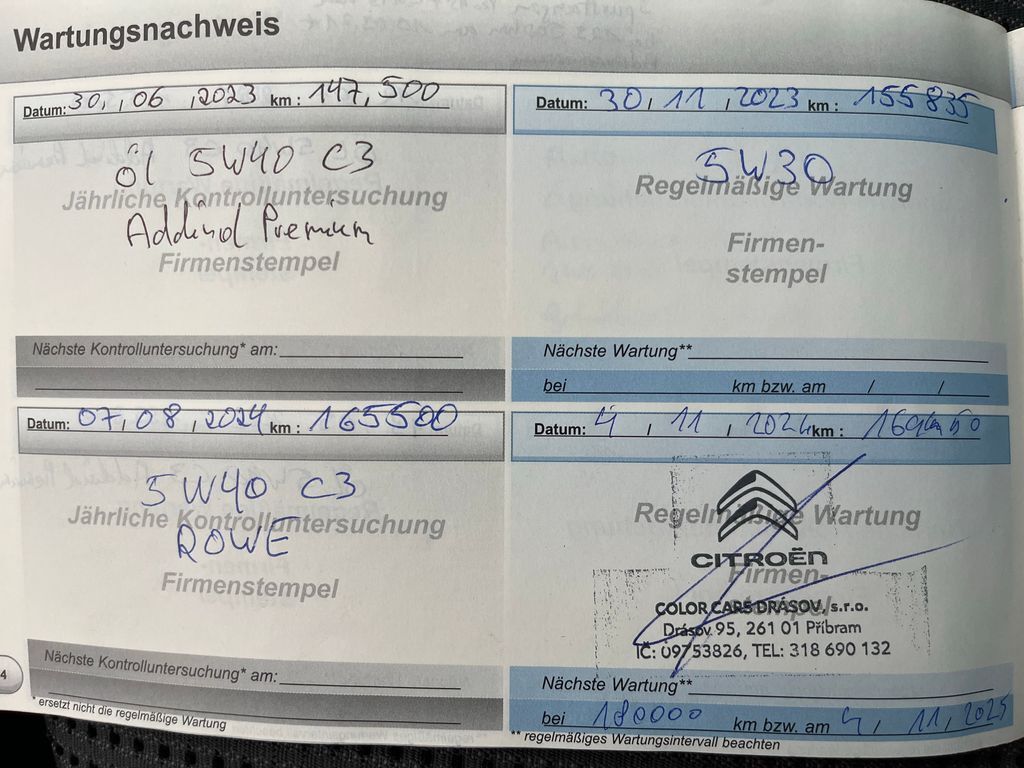 Wartungsnachweis
Datum: 30, , 06 , 2023 km : 147, 500
öl 5W40 C3
Jährliche Kontrolluntersuchung
Addinol Premium
Firmenstempel
Nächste Kontrolluntersuchung* am:
Datum: 30 , 11 , 2023 km : 155835
5W30
Regelmäßige Wartung
Firmen-
stempel
Nächste Wartung**
bei km bzw. am / /
Datum: 07, 08 , 2024 km : 165500
5W40 C3
Jährliche Kontrolluntersuchung
ROWE
Firmenstempel
Nächste Kontrolluntersuchung* am:
* ersetzt nicht die regelmäßige Wartung
4
Datum: 4 , 11 , 2024 km :
Regelmäßige Wartung
CITROËN
Firmen-
stempel
COLOR CARS DRÁSOV, s.r.o.
Drásov 95, 261 01 Příbram
IČ: 09753826, TEL: 318 690 132
Nächste Wartung**
bei 180000 km bzw. am 4 / 11, 2025
** regelmäßiges Wartungsintervall beachten